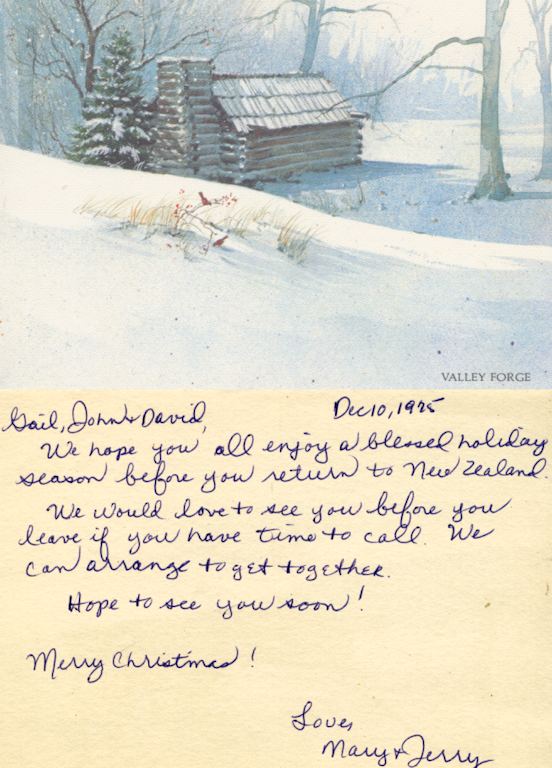 VALLEY FORGE
Gail, John & David, Dec 10, 1975
We hope you all enjoy a blessed holiday
season before you return to New Zealand.
We would love to see you before you
leave if you have time to call. We
can arrange to get together.
Hope to see you soon!
Merry Christmas!
Love,
Mary & Jerry